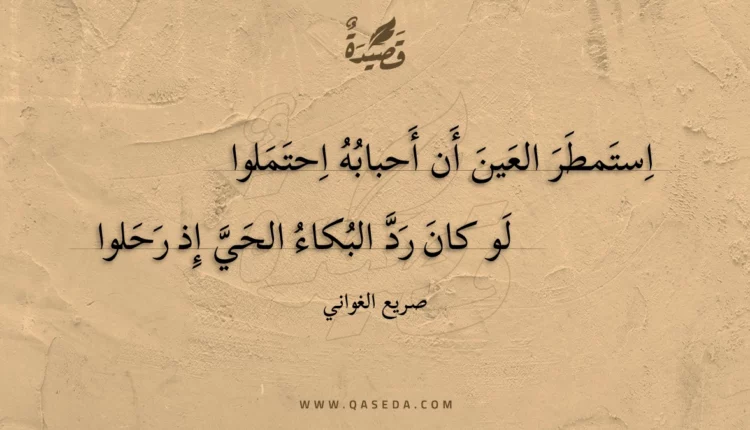 قَصِيدَةٌ
اِستَمطَرَ العَينَ أَن أَحبابُهُ اِحتَمَلوا
لَو كانَ رَدَّ البُكاءُ الحَيَّ إِذ رَحَلوا
صريع الغواني
WWW.QASEDA.COM